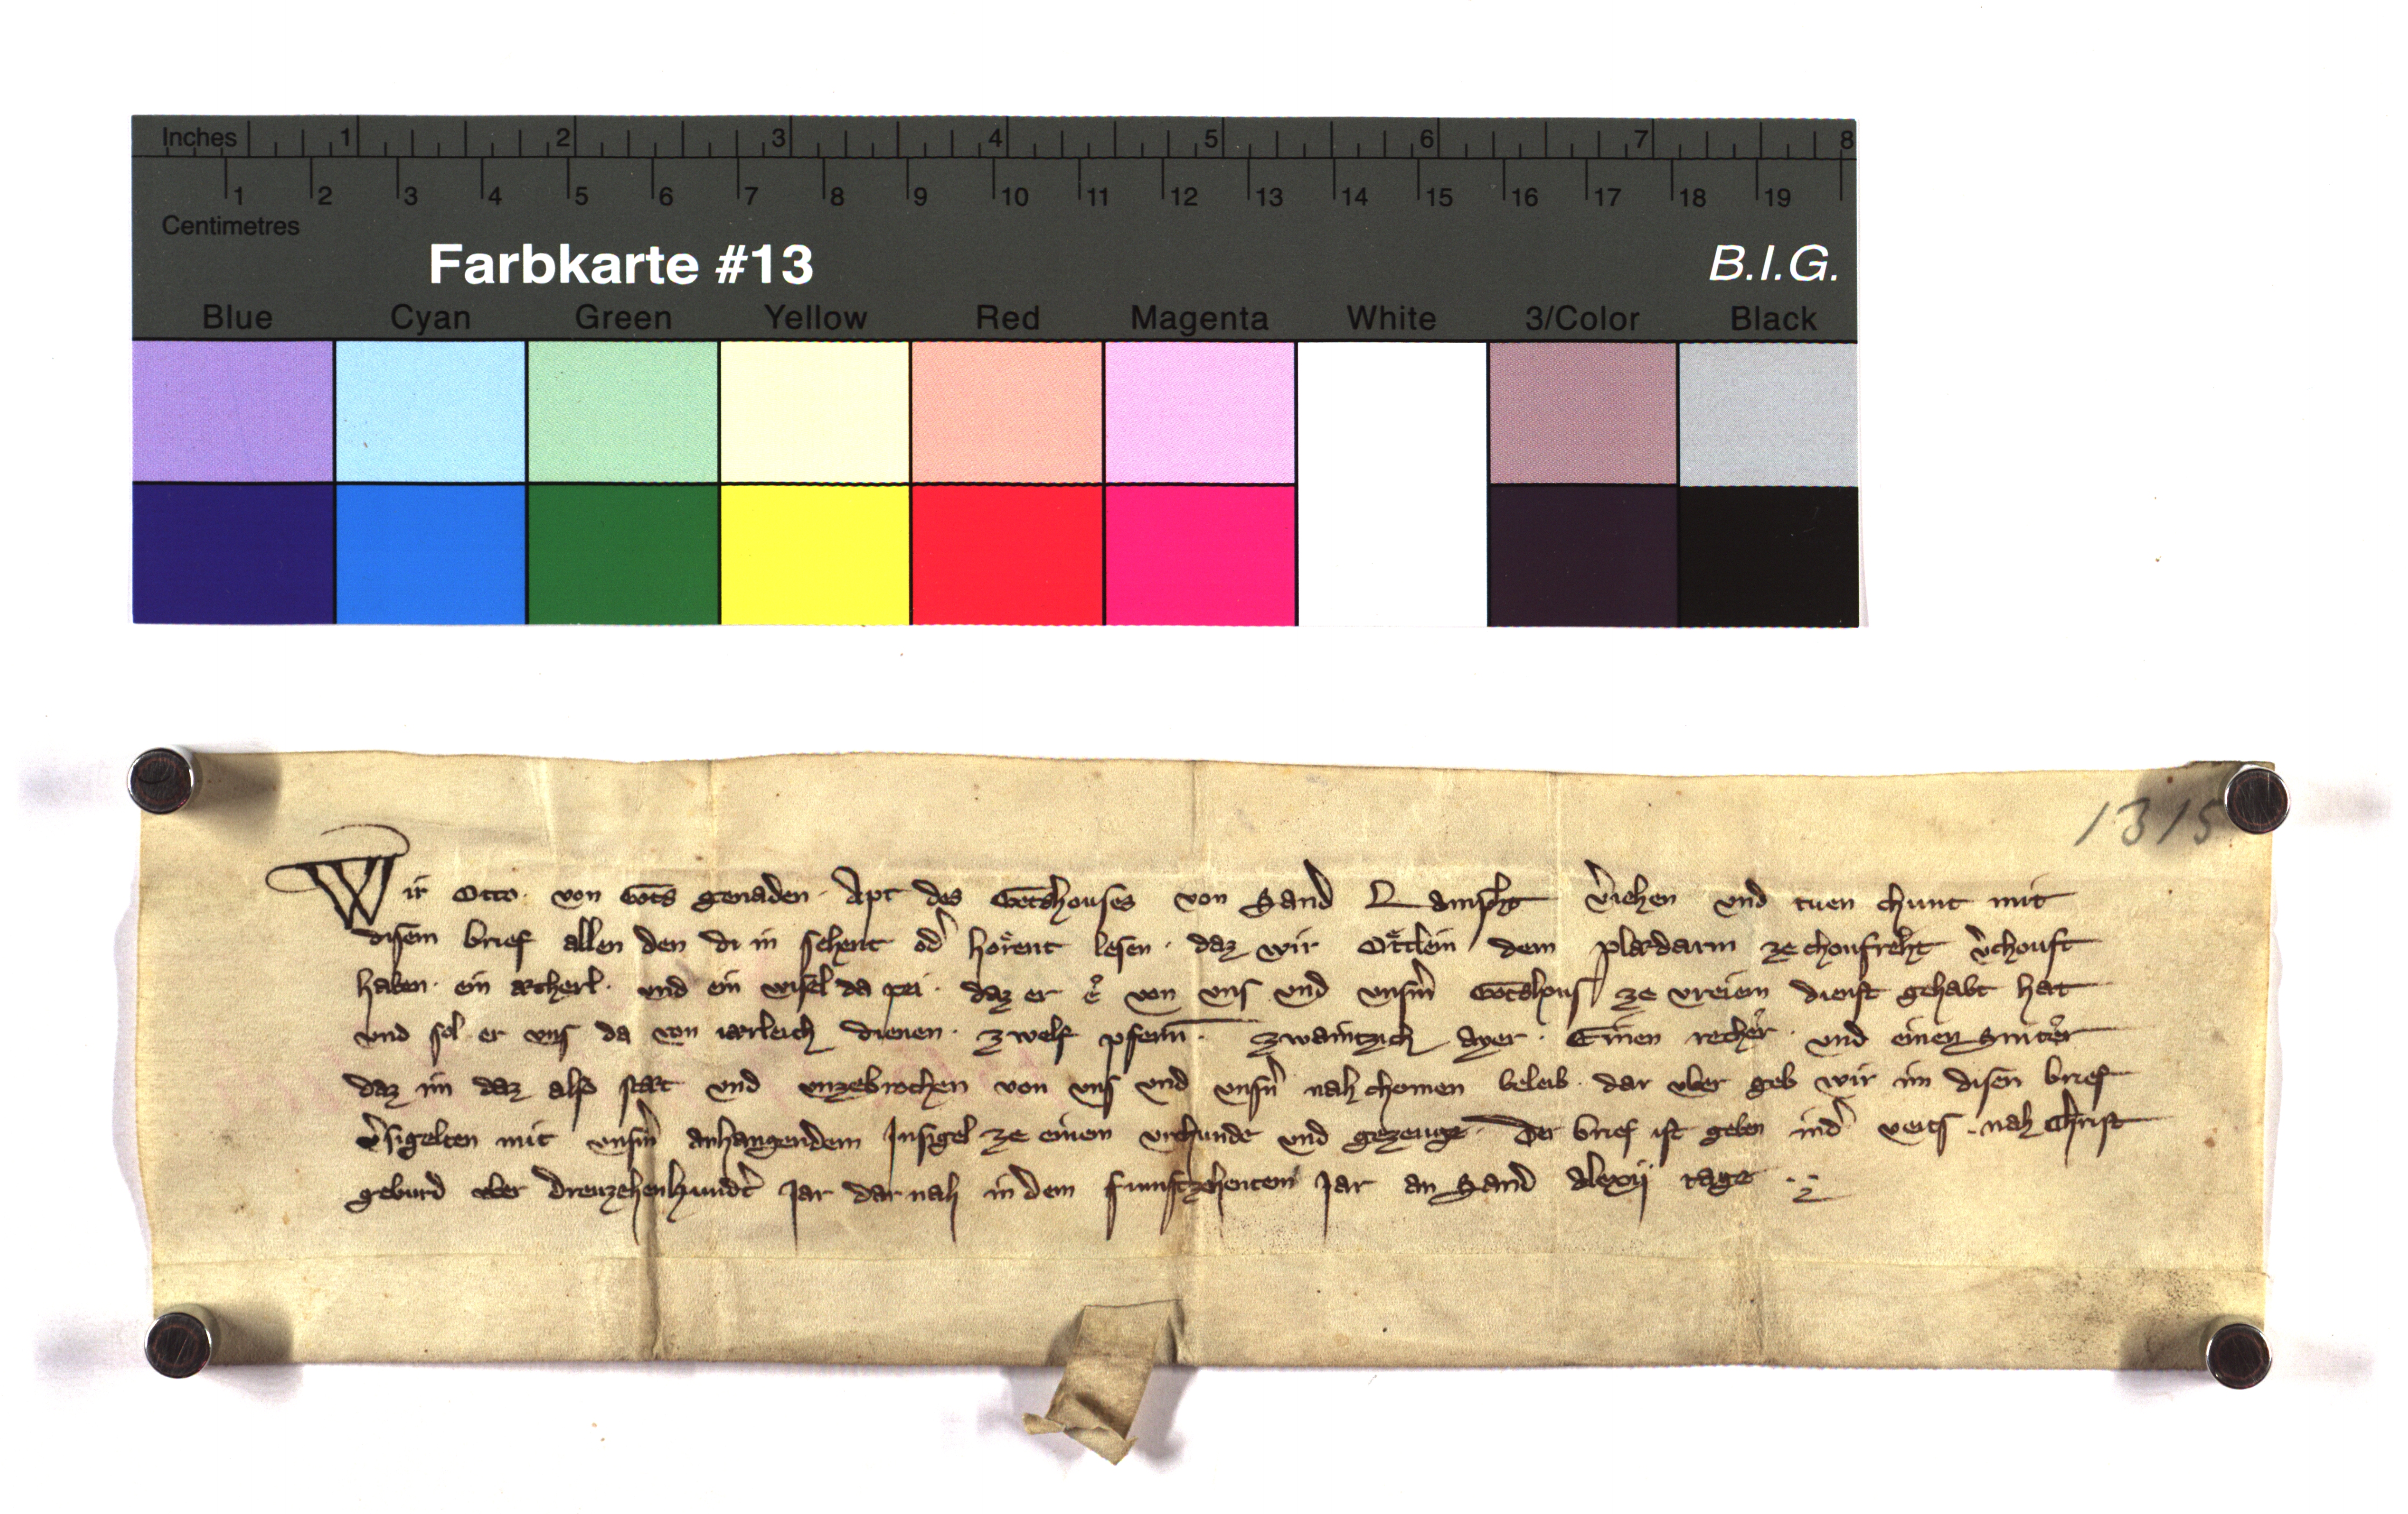 Inches 1 2 3 4 5 6 7 8
1 2 3 4 5 6 7 8 9 10 11 12 13 14 15 16 17 18 19
Centimetres
Farbkarte #13 B.I.G.
Blue Cyan Green Yellow Red Magenta White 3/Color Black
1315
Wir Otto · von Gots genaden · Apt des Gotshouses von Sand Lampht v̾iehen vnd tuen chunt mit
disem brief allen den di in sehent od̾ hoͤrent lesen · daz wir Oͤttlein dem ze choufreht v̾chouft
haben · ein ækherl · vnd ein wisel da pei · daz er ê von vns vnd vnsm̾ Gotshous ze vreiem dienst gehabt hat
vnd sol er vns da von iærleich dienen · zwelf pfenn̄ · zwaintzich ayer · Einen recher · vnd einen Snit̾er
daz im daz also stæt vnd vnzebrochen von vns vnd vnsn̾ nah chomen beleib · dar vber geb wir im disen brief
v̾sigelten mit vnsm̾ anhangendem Insigel ze einem vrchunde vnd gezeuge · Der brief ist geben ind̾ · nah Christ
geburd vber dreuzehenhund̾t Jar dar nah in dem fumftzehentem Jar an Sand Alexij tage ·